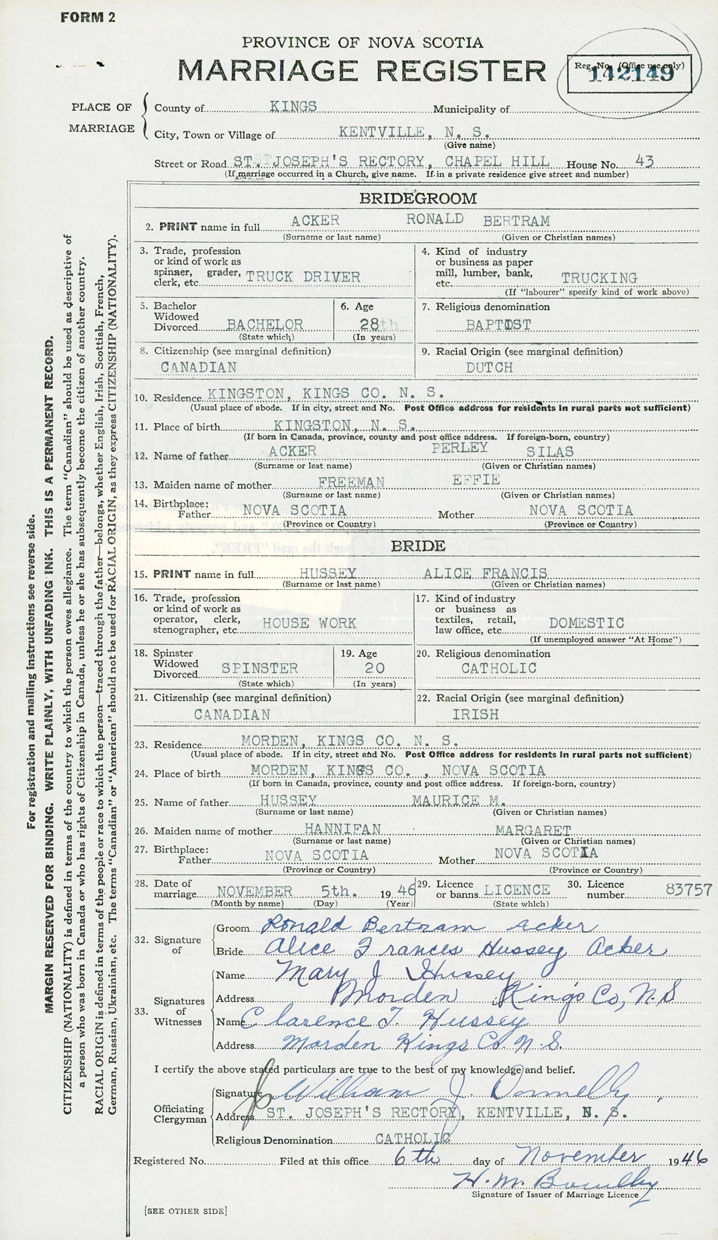 FORM 2
PROVINCE OF NOVA SCOTIA
MARRIAGE REGISTER
Reg. No. (Office use only)
142149
PLACE OF MARRIAGE
County of KINGS Municipality of
City, Town or Village of KENTVILLE, N. S.
(Give name)
Street or Road ST. JOSEPH'S RECTORY, CHAPEL HILL House No. 43
(If marriage occurred in a Church, give name. If in a private residence give street and number)
BRIDEGROOM
2. PRINT name in full ACKER RONALD BERTRAM
(Surname or last name) (Given or Christian names)
3. Trade, profession
or kind of work as
spinner, grader,
clerk, etc. TRUCK DRIVER
4. Kind of industry
or business as paper
mill, lumber, bank,
etc. TRUCKING
(If "labourer" specify kind of work above)
5. Bachelor
Widowed
Divorced BACHELOR
(State which)
6. Age
28th
(In years)
7. Religious denomination
BAPTIST
8. Citizenship (see marginal definition)
CANADIAN
9. Racial Origin (see marginal definition)
DUTCH
10. Residence KINGSTON, KINGS CO. N. S.
(Usual place of abode. If in city, street and No. Post Office address for residents in rural parts not sufficient)
11. Place of birth KINGSTON, N. S.
(If born in Canada, province, county and post office address. If foreign-born, country)
12. Name of father ACKER PERLEY SILAS
(Surname or last name) (Given or Christian names)
13. Maiden name of mother FREEMAN EFFIE
(Surname or last name) (Given or Christian names)
14. Birthplace:
Father NOVA SCOTIA Mother NOVA SCOTIA
(Province or Country) (Province or Country)
BRIDE
15. PRINT name in full HUSSEY ALICE FRANCIS
(Surname or last name) (Given or Christian names)
16. Trade, profession
or kind of work as
operator, clerk,
stenographer, etc. HOUSE WORK
17. Kind of industry
or business as
textiles, retail,
law office, etc. DOMESTIC
(If unemployed answer "At Home")
18. Spinster
Widowed
Divorced SPINSTER
(State which)
19. Age
20
(In years)
20. Religious denomination
CATHOLIC
21. Citizenship (see marginal definition)
CANADIAN
22. Racial Origin (see marginal definition)
IRISH
23. Residence MORDEN, KINGS CO. N. S.
(Usual place of abode. If in city, street and No. Post Office address for residents in rural parts not sufficient)
24. Place of birth MORDEN, KINGS CO. , NOVA SCOTIA
(If born in Canada, province, county and post office address. If foreign-born, country)
25. Name of father HUSSEY MAURICE M.
(Surname or last name) (Given or Christian names)
26. Maiden name of mother HANNIFAN MARGARET
(Surname or last name) (Given or Christian names)
27. Birthplace:
Father NOVA SCOTIA Mother NOVA SCOTIA
(Province or Country) (Province or Country)
28. Date of
marriage NOVEMBER 5th. 1946
(Month by name) (Day) (Year)
29. Licence
or banns LICENCE
(State which)
30. Licence
number 83757
32. Signature of
Groom Ronald Bertram Acker
Bride Alice Frances Hussey Acker
33. Signatures of Witnesses
Name Mary J. Hussey
Address Morden Kings Co, N.S
Name Clarence T. Hussey
Address Morden Kings Co. N.S.
I certify the above stated particulars are true to the best of my knowledge and belief.
Officiating Clergyman
Signature William J. Donnelly
Address ST. JOSEPH'S RECTORY, KENTVILLE, N. S.
Religious Denomination CATHOLIC
Registered No. Filed at this office 6th day of November 1946
H. M.
Signature of Issuer of Marriage Licence
[SEE OTHER SIDE]
For registration and mailing instructions see reverse side.
MARGIN RESERVED FOR BINDING. WRITE PLAINLY, WITH UNFADING INK. THIS IS A PERMANENT RECORD.
CITIZENSHIP (NATIONALITY) is defined in terms of the country to which the person owes allegiance. The term "Canadian" should be used as descriptive of
a person who was born in Canada or who has rights of Citizenship in Canada, unless he or she has subsequently become the citizen of another country.
RACIAL ORIGIN is defined in terms of the people or race to which the person—traced through the father—belongs, whether English, Irish, Scottish, French,
German, Russian, Ukrainian, etc. The terms "Canadian" or "American" should not be used for RACIAL ORIGIN, as they express CITIZENSHIP (NATIONALITY).